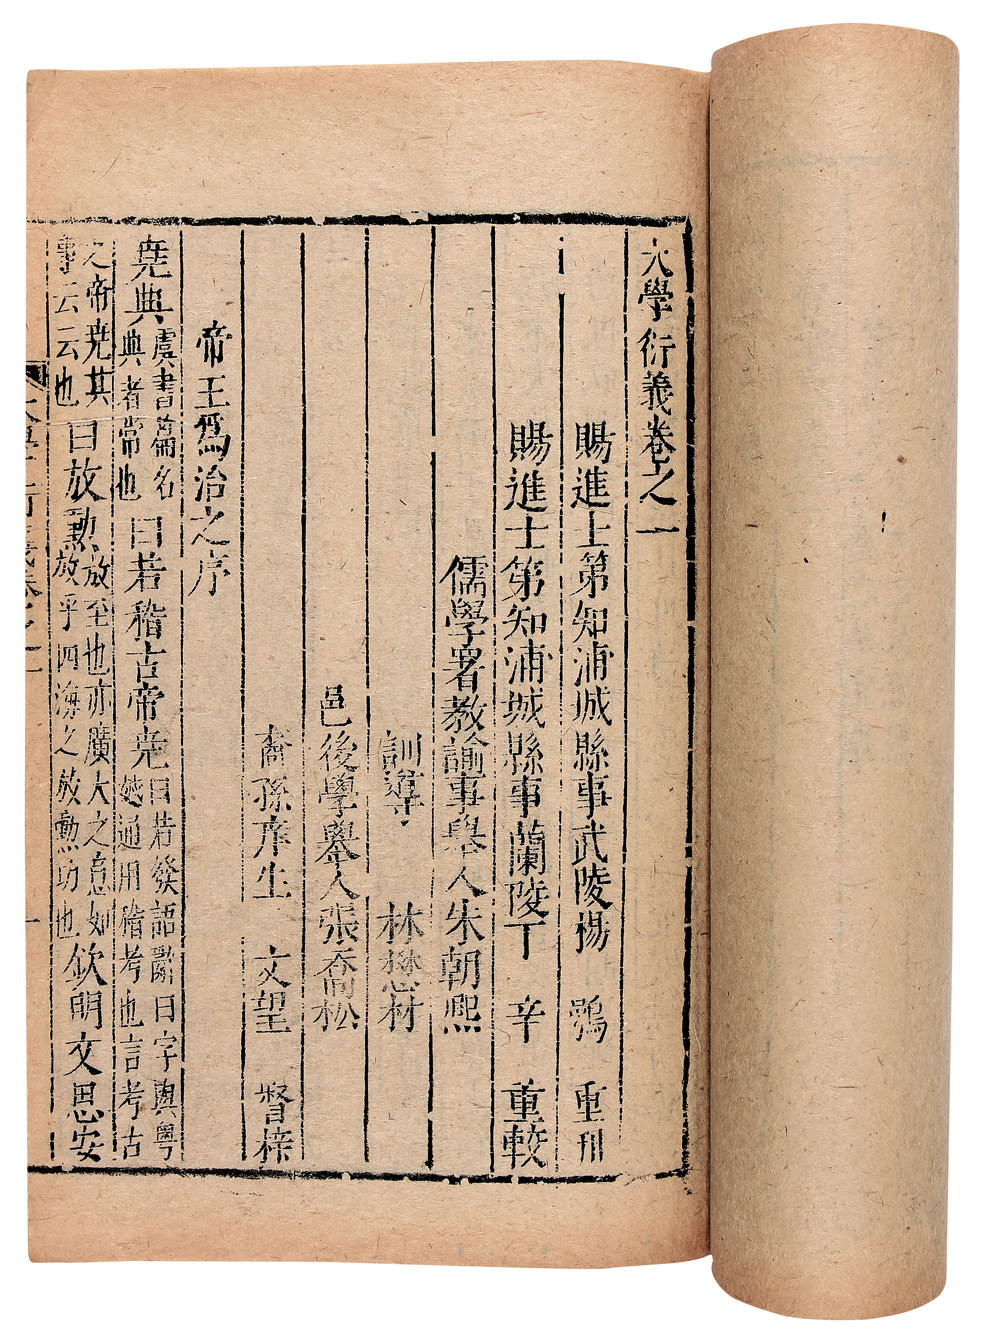 大學衍義卷之一
賜進士第知浦城縣事武陵楊 鶚 重刊
賜進士第知浦城縣事蘭陵丁 辛 重較
儒學署教諭事舉人朱朝熙
訓導 林懋材
邑後學舉人張喬松
裔孫庠生 文望 督梓
帝王爲治之序
堯典虞書篇名典者常也曰若稽古帝堯曰若發語辭曰字與粵越通用稽考也言考古
之帝堯其事云云也曰放勲放至也亦廣大之意如放乎四海之放勲功也欽明文思安
大學衍義卷之一 一